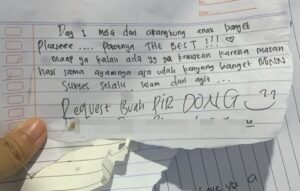 Day 1 MBG dari cikangkung enak banget
Pleaseee .... THE BEST !!! ♡
maap ya kalau ada yg ga kemakan karena makan
nasi sama ayamnya aja udah kenyang banget
Sukses selalu salam dari
Request Buah PIR DONG